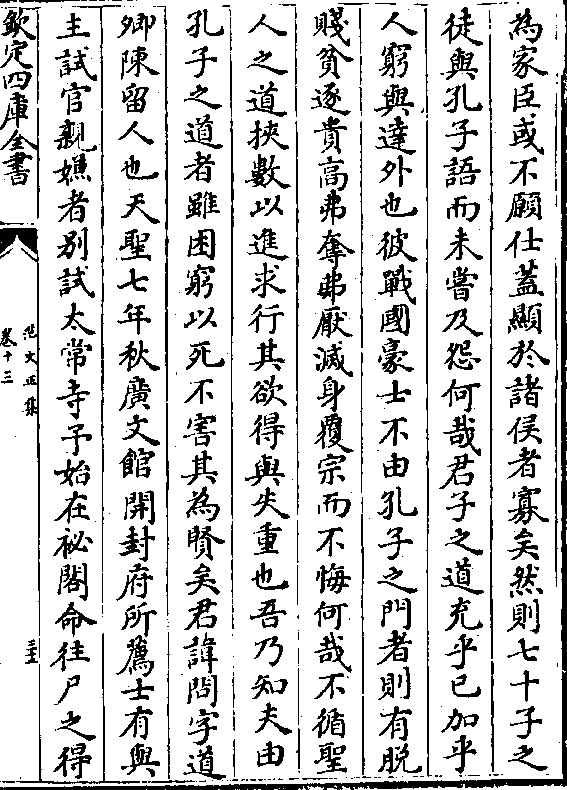 為家臣或不願仕蓋顯於諸侯者寡矣然則七十子之
徒與孔子語而未嘗及怨何哉君子之道充乎已加乎
人窮與達外也彼戰國豪士不由孔子之門者則有脱
賤貧逐貴高弗奪弗厭滅身覆宗而不悔何哉不循聖
人之道挾數以進求行其欲得與失重也吾乃知夫由
孔子之道者雖困窮以死不害其為賢矣君諱問字道
卿陳留人也天聖七年秋廣文館開封府所薦士有與
主試官親嫌者别試太常寺予始在祕閣命往尸之得
欽定四庫全書
范文正集
卷十三
三十五